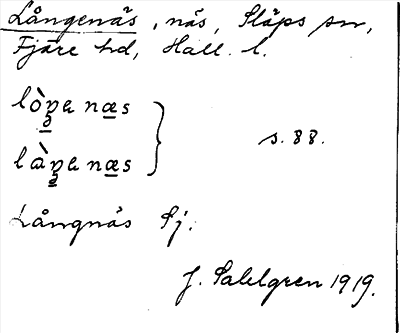 Långenäs, näs, Släps sn,
Fjäre hd, Hall. l.
lòŋenæs
làŋenæs } s. 88.
Långnäs Sj.
J. Sahlgren 1919.